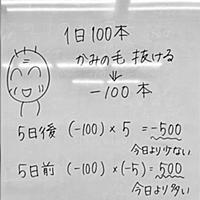 1日100本
かみの毛 抜ける
⇓
−100本
5日後 (−100)×5 = −500
今日より少ない
5日前 (−100)×(−5) = 500
今日より多い